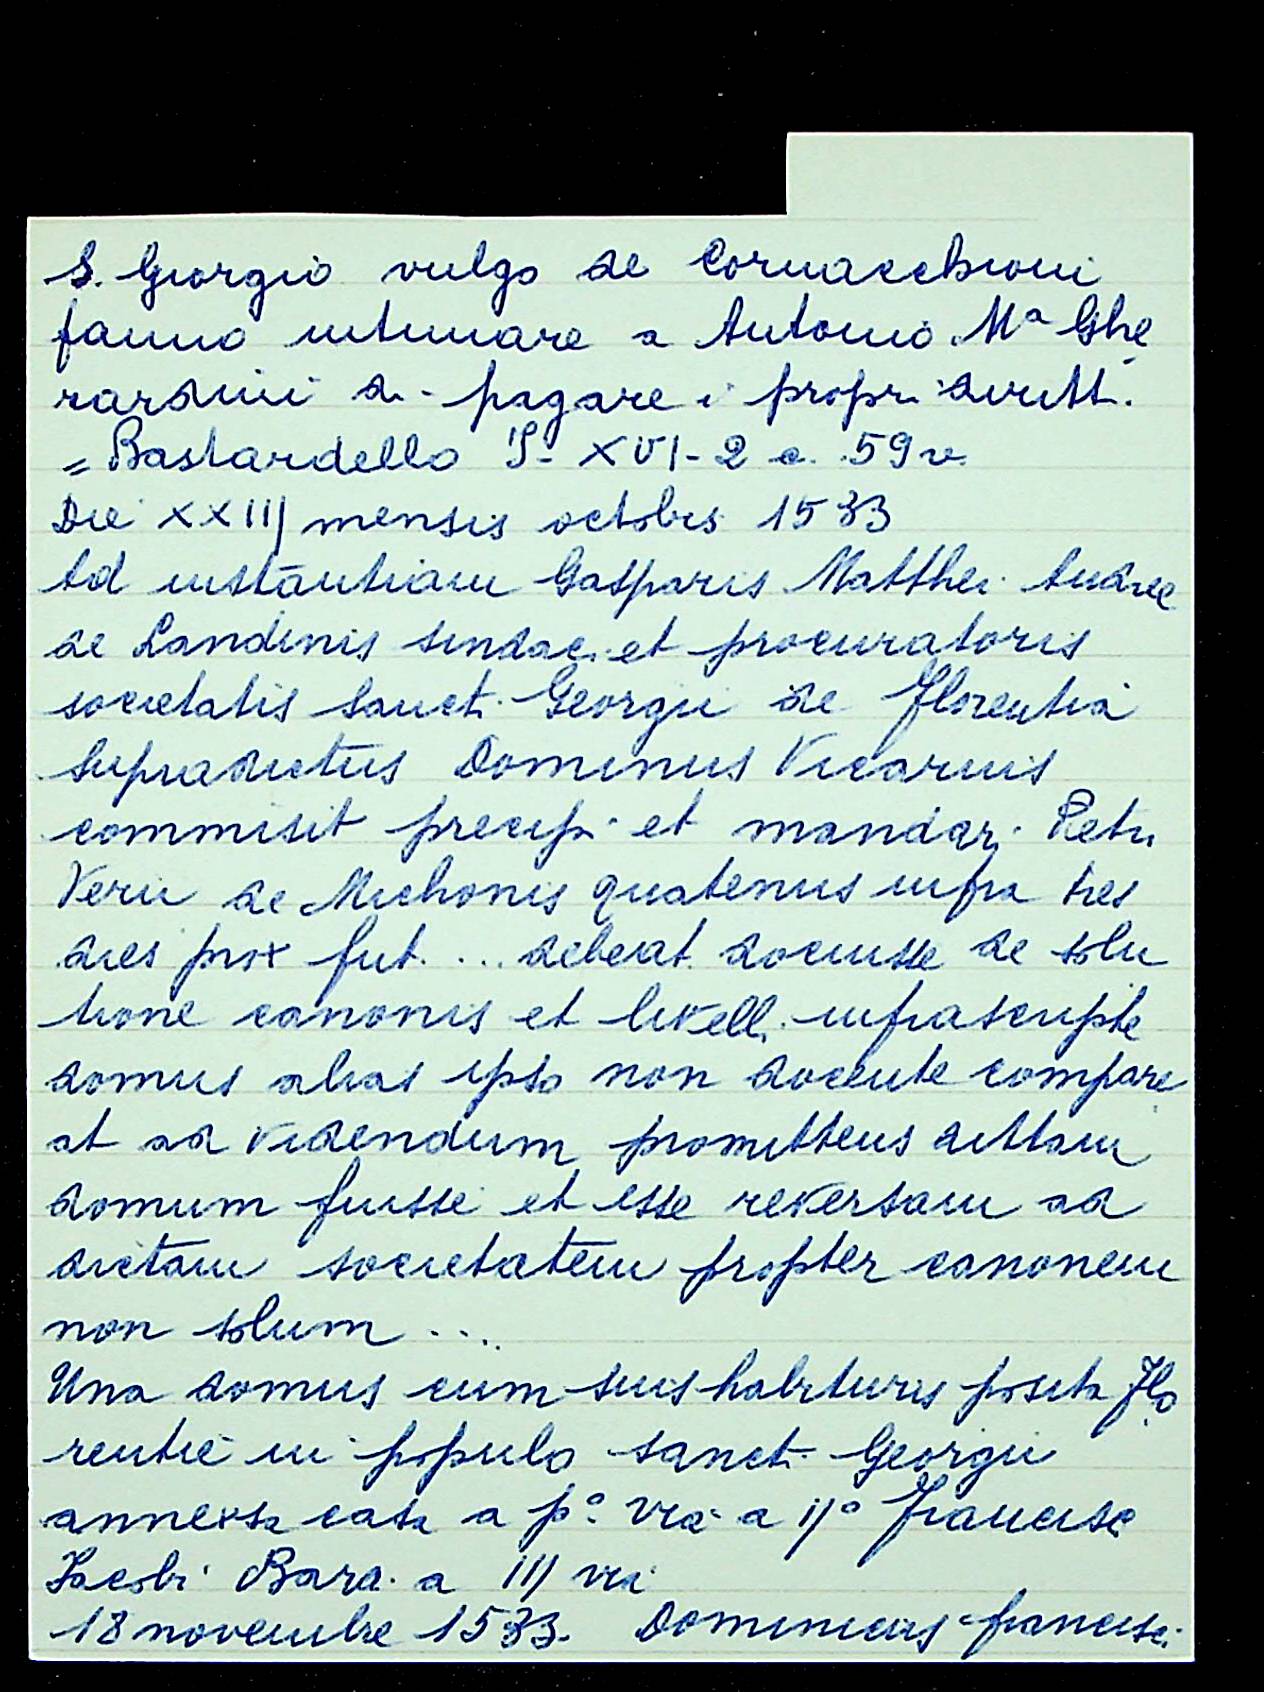 S. Giorgio vulgo de Cornacchioni
fanno intimare a Antonio Mª Ghe
rardini di pagare i propri diritti.
= Bastardello S- XVI-2 c. 59v.
Die XXIIJ mensis octobris 1533
Ad instāntiam Gasparis Matthei Andree
de Landinis sindaci et procuratoris
societatis Sancti Georgii de Florentia
Supradictus Dominus Vicarius
commisit precipi et mandari Petri
Verii de Michonis quatenus infra tres
dies prox fut. ... debeat docuisse de solu
tione canonis et livelli infrascripte
domus alias ipso non docente compare
at ad videndum promittens dittam
domum fuisse et esse reversam ad
dictam societatem propter canonem
non solum ...
Una domus cum suis habituris posita Flo
rentie in populo sancti Georgii
annexsa casa a pº via a IJº Francisci
Jacobi Bara. a III via
18 novembre 1533. Dominicus francisci